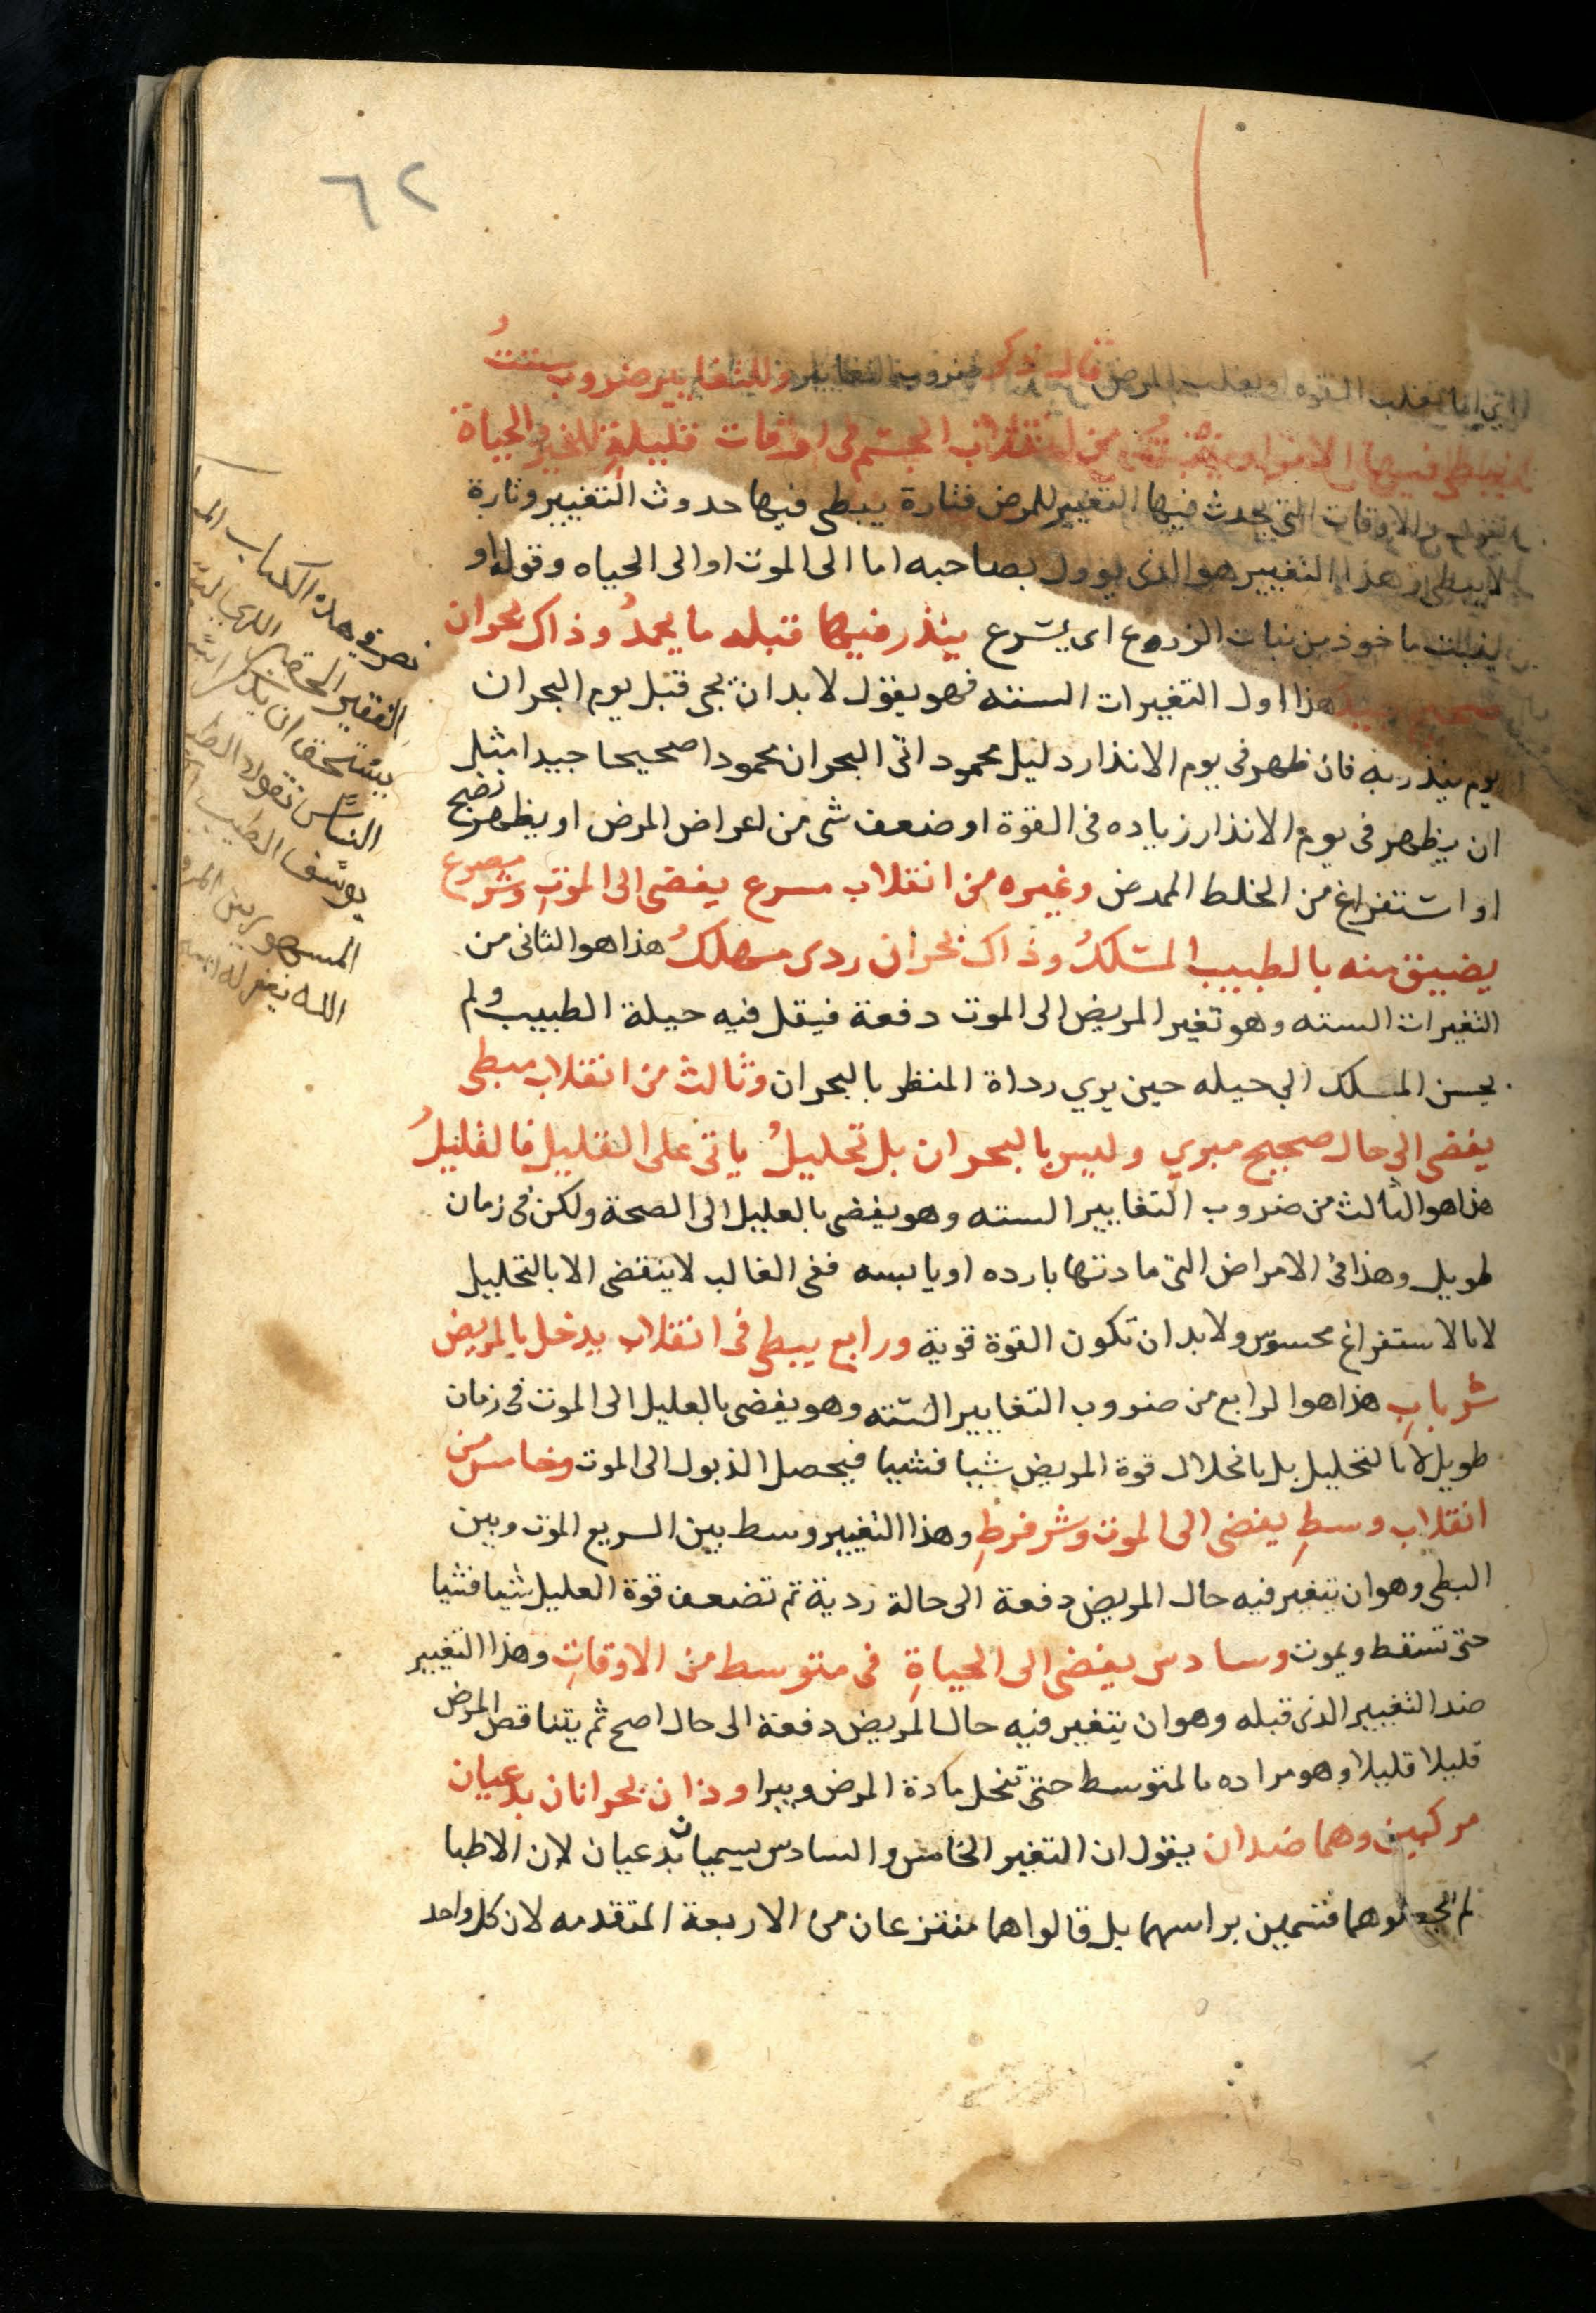 ٦٢
اما يغلب القوه او يغلب المرض قال ذكر ضروب التغايير وللتغابير ضروب ستت
يبطى فيها من انقلاب الجسم فى اوقات قليلة للخير والحياة
الاوقات التى يحدث فيها التغيير للمرض فتارة يبطى فيها حدوث التغيير وتارة
لا يبطى وهذا التغيير هو الذى يوول بصاحبه اما الى الموت او الى الحياه وقوله او
ماخوذ من نبات الزروع اى يسرع ينذر فيها قبله ما يحمد وذاك بحران
هذا اول التغييرات السته فهو يقول لا بد ان يجى قبل يوم البحران
يوم ينذر به فان ظهر فى يوم الانذار دليل محمود اتى البحران محمودا صحيحا جيدا مثل
ان يظهر فى يوم الانذار زياده فى القوة او ضعف شى من اعراض المرض او يظهر نضج
او استفراغ من الخلط الممرض وغيره من انقلاب مسرع يفضى الى الموت وشر مصرع
يضيق منه بالطبيب المسلك وذاك بحران ردى مهلك هذا هو الثانى من
التغيرات السته وهو تغير المريض الى الموت دفعة فيقل فيه حيلة الطبيب ولم
يحسن المسلك الي حيله حين يري رداة المنظر بالبحران وثالث من انقلاب مبطى
يفضى الى حال صحيح مبري وليس بالبحران بل تحليل ياتى على القليل فالقليل
هذا هو الثالث من ضروب التغايير السته وهو يفضى بالعليل الى الصحة ولكن فى زمان
طويل وهذا فى الامراض التى مادتها بارده او يابسه ففى الغالب لا ينقضى الا بالتحليل
لا بالاستفراغ محسوس ولا بد ان تكون القوة قوية ورابع يبطى فى انقلاب يدخل بالمريض
شر باب هذا هو الرابع من ضروب التغايير السته وهو يفضى بالعليل الى الموت فى زمان
طويل لا بالتحليل بل بانحلال قوة المريض شيا فشيا فيحصل الذبول الى الموت وخامس من
انقلاب وسط يفضى الى الموت وشر فرط وهذا التغيير وسط بين السريع الموت وبين
البطى وهو ان يتغير فيه حال المريض دفعة الى حالة ردية ثم تضعف قوة العليل شيا فشيا
حتى تسقط ويموت وسادس يفضى الى الحياة فى متوسط من الاوقات وهذا التغيير
ضد التغيير الذى قبله وهو ان يتغير فيه حال المريض دفعة الى حال اصح ثم يتناقص المرض
قليلا قليلا وهو مراده بالمتوسط حتى تنحل مادة المرض ويبرا وذان بحرانان يدعيان
مركبين وهما ضدان يقول ان التغير الخامس والسادس يسميان يدعيان لان الاطبا
لم يجعلوهما قسمين براسهما بل قالوا هما منتزعان من الاربعة المتقدمه لان كل واحد
نصرف هذه الكتاب
الفقير الحقير الذي
يستحق ان يذكر
الناس تقول
يوسف الطبيب
الله يغفر له